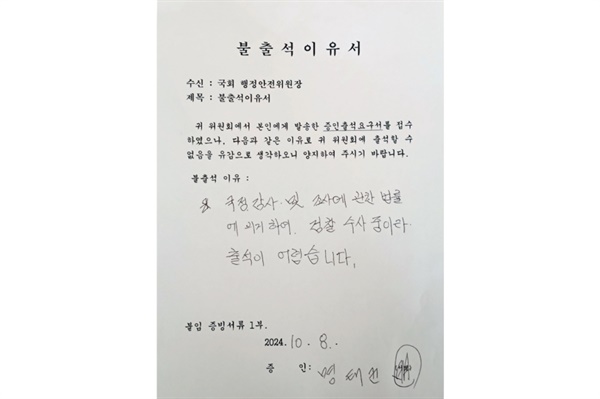 불출석이유서
수신 : 국회 행정안전위원장
제목 : 불출석이유서
귀 위원회에서 본인에게 발송한 증인출석요구서를 접수
하였으나, 다음과 같은 이유로 귀 위원회에 출석할 수
없음을 유감으로 생각하오니 양지하여 주시기 바랍니다.
불출석 이유 :
국정감사 및 조사에 관한 법률
에 의거하여. 검찰 수사 중이라
출석이 어렵습니다.
붙임 증빙서류 1부.
2024. 10. 8.
증 인: 명태균